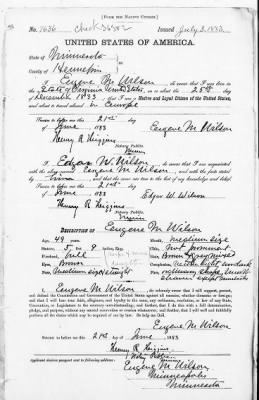 [FORM FOR NATIVE CITIZEN.]
No. 7636 Check 36582 Issued July 3, 1883
UNITED STATES OF AMERICA.
State of Minnesota
County of Hennepin
I, Eugene M Wilson, do swear that I was born in
State of Virginia United States, on the 25th day of
December 1833
that I am a Native and Loyal Citizen of the United States,
and about to travel abroad in Europe
Sworn to before me this 21st day
of June 1883
Eugene M Wilson
Henry R Higgins
Notary Public.
I, Edgar W. Wilson, do swear that I am acquainted
with the above named Eugene M Wilson, and with the facts
stated by him, and that the same are true to the best of my knowledge and belief.
Sworn to before me this 21st day
of June 1883
Edgar W. Wilson
Henry R Higgins
Notary Public.
DESCRIPTION OF Eugene M Wilson
Age, 49 years
Mouth, medium size
Stature, 5 feet 9 inches, Eng.
Chin, not prominent
Forehead, full
Hair, Brown
Eyes, Brown
Complexion,
Nose, medium size straight
Face,
I, Eugene M Wilson, do solemnly swear that I will support, protect,
and defend the Constitution and Government of the United States against all enemies, whether domestic or foreign;
and that I will bear true faith, allegiance, and loyalty to the same, any ordinance, resolution, or law of any State,
Convention, or Legislature to the contrary notwithstanding; and further, that I do this with a full determination,
pledge, and purpose, without any mental reservation or evasion whatsoever; and further, that I will well and faithfully
perform all the duties which may be required of me by law: So help me God.
Eugene M Wilson
Sworn to before me this 21st day of June 1883
Henry R Higgins
Notary Public
Applicant desires passport sent to following address:
Eugene M Wilson
Minneapolis
Minnesota